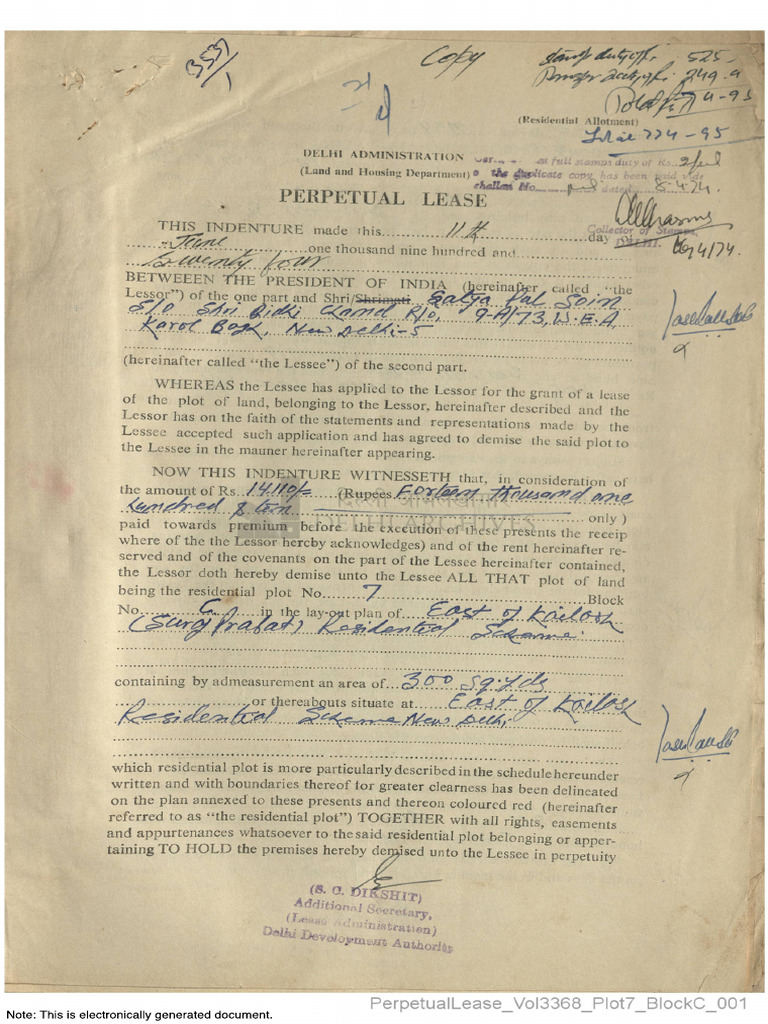 3537/1
Copy
stamp duty 525.
249.9
774-95
(Residential Allotment)
Total 774-95
DELHI ADMINISTRATION
(Land and Housing Department)
full stamps duty of Rs.
the duplicate copy has been paid vide
challan No. dated 8.4.74.
PERPETUAL LEASE
THIS INDENTURE made this 11th day
Collector of Stamps,
DELHI.
June one thousand nine hundred and
Seventy four
BETWEEEN THE PRESIDENT OF INDIA (hereinafter called "the
Lessor") of the one part and Shri/Shrimati Satya Pal Soin
S/o Shri Bidhi Chand R/o, 9-A/73, W.E.A
Karol Bagh, New Delhi-5
(hereinafter called "the Lessee") of the second part.
WHEREAS the Lessee has applied to the Lessor for the grant of a lease
of the plot of land, belonging to the Lessor, hereinafter described and the
Lessor has on the faith of the statements and representations made by the
Lessee accepted such application and has agreed to demise the said plot to
the Lessee in the mauner hereinafter appearing.
NOW THIS INDENTURE WITNESSETH that, in consideration of
the amount of Rs. 14110/- (Rupees Forteen thousand one
hundred & ten only )
दिल्ली अभिलेखागार
DELHI ARCHIVES
paid towards premium before the execution of these presents the receip
where of the the Lessor hereby acknowledges) and of the rent hereinafter re-
served and of the covenants on the part of the Lessee hereinafter contained,
the Lessor doth hereby demise unto the Lessee ALL THAT plot of land
being the residential plot No. 7 Block
No. C in the lay-out plan of East of Kailash
(Suraj Prabat) Residential Scheme.
containing by admeasurement an area of 300 Sq.yds
or thereabouts situate at East of Kailash
Residential Scheme New Delhi
which residential plot is more particularly described in the schedule hereunder
written and with boundaries thereof for greater clearness has been delincated
on the plan annexed to these presents and thereon coloured red (hereinafter
referred to as "the residential plot") TOGETHER with all rights, easements
and appurtenances whatsoever to the said residential plot belonging or apper-
taining TO HOLD the premises hereby demised unto the Lessee in perpetuity
(S. C. DIKSHIT)
Additional Secretary,
(Lease Administration)
Delhi Development Authority
PerpetualLease_Vol3368_Plot7_BlockC_001
Note: This is electronically generated document.